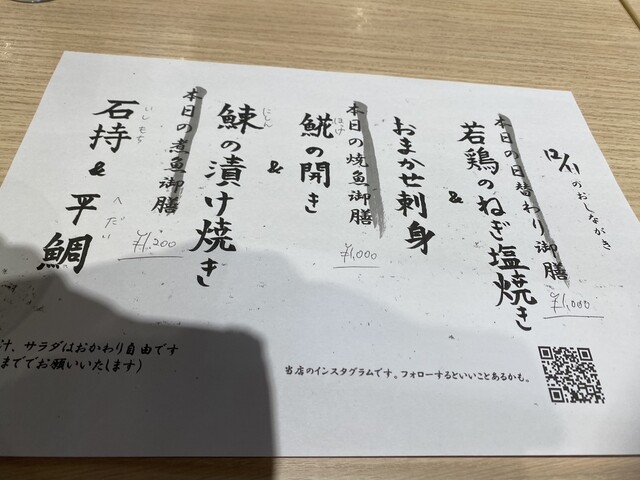 のおしながき
本日の日替わり御膳
¥1,000
若鶏のねぎ塩焼き
&
おまかせ刺身
本日の焼魚御膳
¥1,000
ほっけ
𩸽の開き
&
にしん
鰊の漬け焼き
本日の煮魚御膳
¥1,200
いしもち
石持 & 平鯛
へだい
汁、サラダはおかわり自由です
まででお願いいたします)
当店のインスタグラムです。フォローするといいことあるかも。